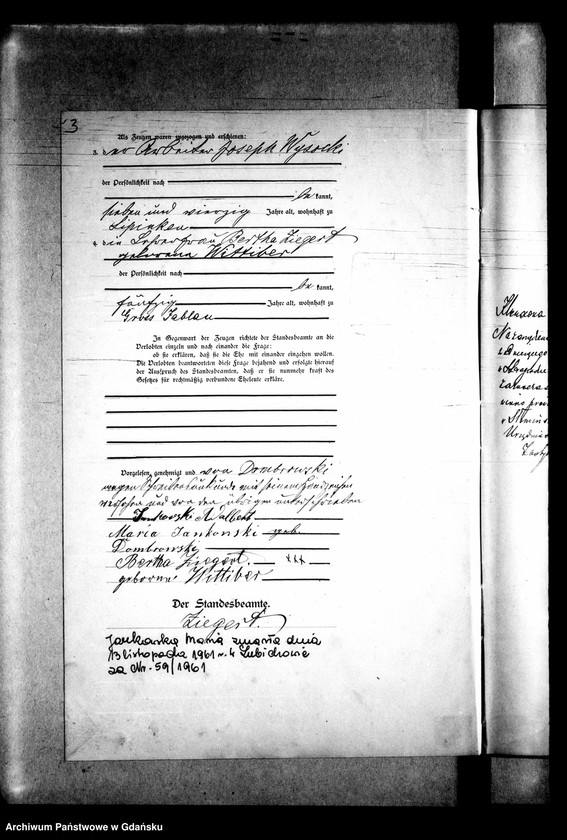 3
Als Zeugen waren zugezogen und erschienen:
3. der Arbeiter Joseph Wysocki
der Persönlichkeit nach
be kannt,
sieben und vierzig Jahre alt, wohnhaft zu
Lipinken
4. die Lehrerfrau Bertha Ziegert
geborene Wittiber
der Persönlichkeit nach
be kannt,
fünfzig Jahre alt, wohnhaft zu
Gross Jablau
In Gegenwart der Zeugen richtete der Standesbeamte an die
Verlobten einzeln und nach einander die Frage:
ob sie erklären, daß sie die Ehe mit einander eingehen wollen.
Die Verlobten beantworteten diese Frage bejahend und erfolgte hierauf
der Ausspruch des Standesbeamten, daß er sie nunmehr kraft des
Gesetzes für rechtmäßig verbundene Eheleute erkläre.
Vorgelesen, genehmigt und von Dombrowski
wegen Schreibensunkunde mit seinem Handzeichen
versehen und von den übrigen unterschrieben
Jankowski Adalbert
Maria Jankowski geb.
Dombrowski
Bertha Ziegert. xxx
geborene Wittiber
Der Standesbeamte.
Ziegert.
Jankowska Maria zmarła dnia
13 listopada 1961 r. w Lubichowie
za Nr. 59/1961
Archiwum Państwowe w Gdańsku